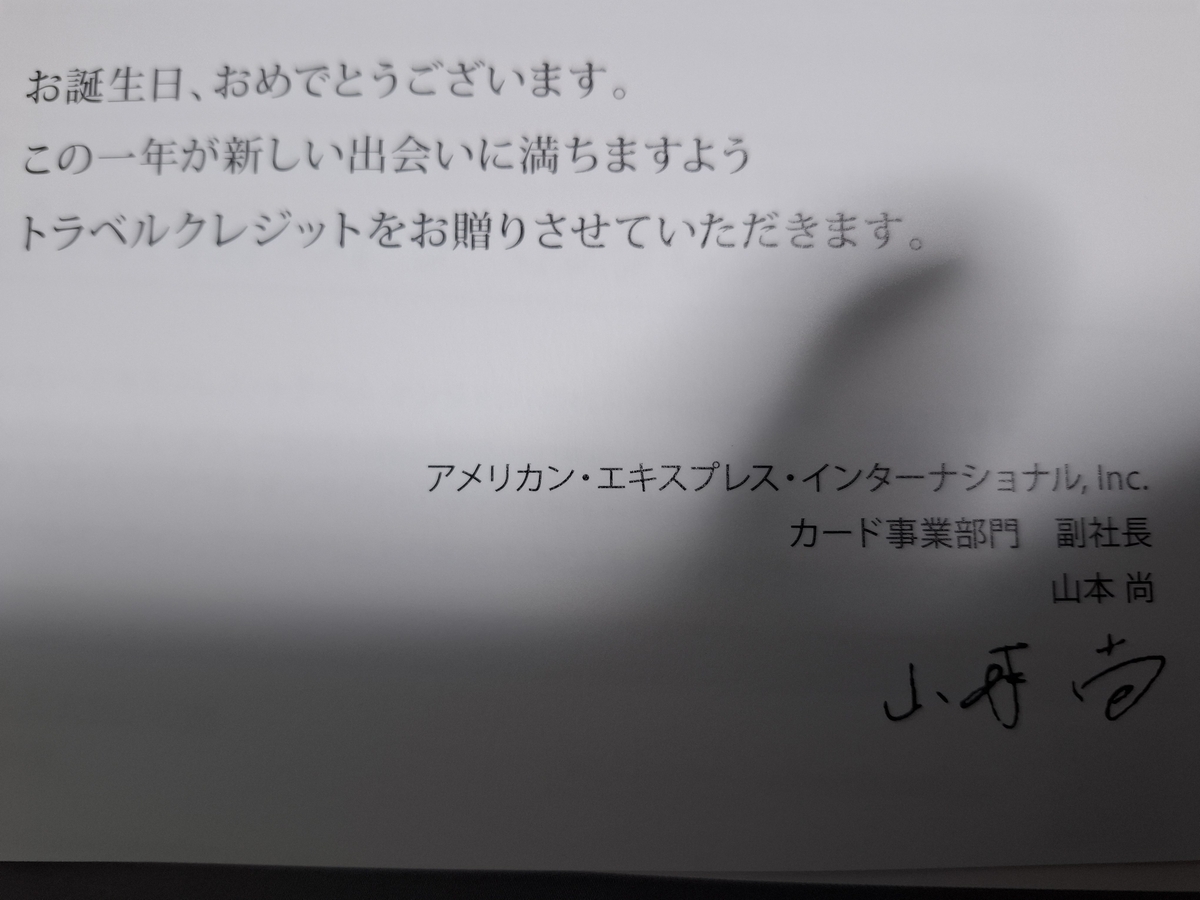 お誕生日、おめでとうございます。
この一年が新しい出会いに満ちますよう
トラベルクレジットをお贈りさせていただきます。
アメリカン・エキスプレス・インターナショナル, Inc.
カード事業部門　副社長
山本 尚
山本 尚